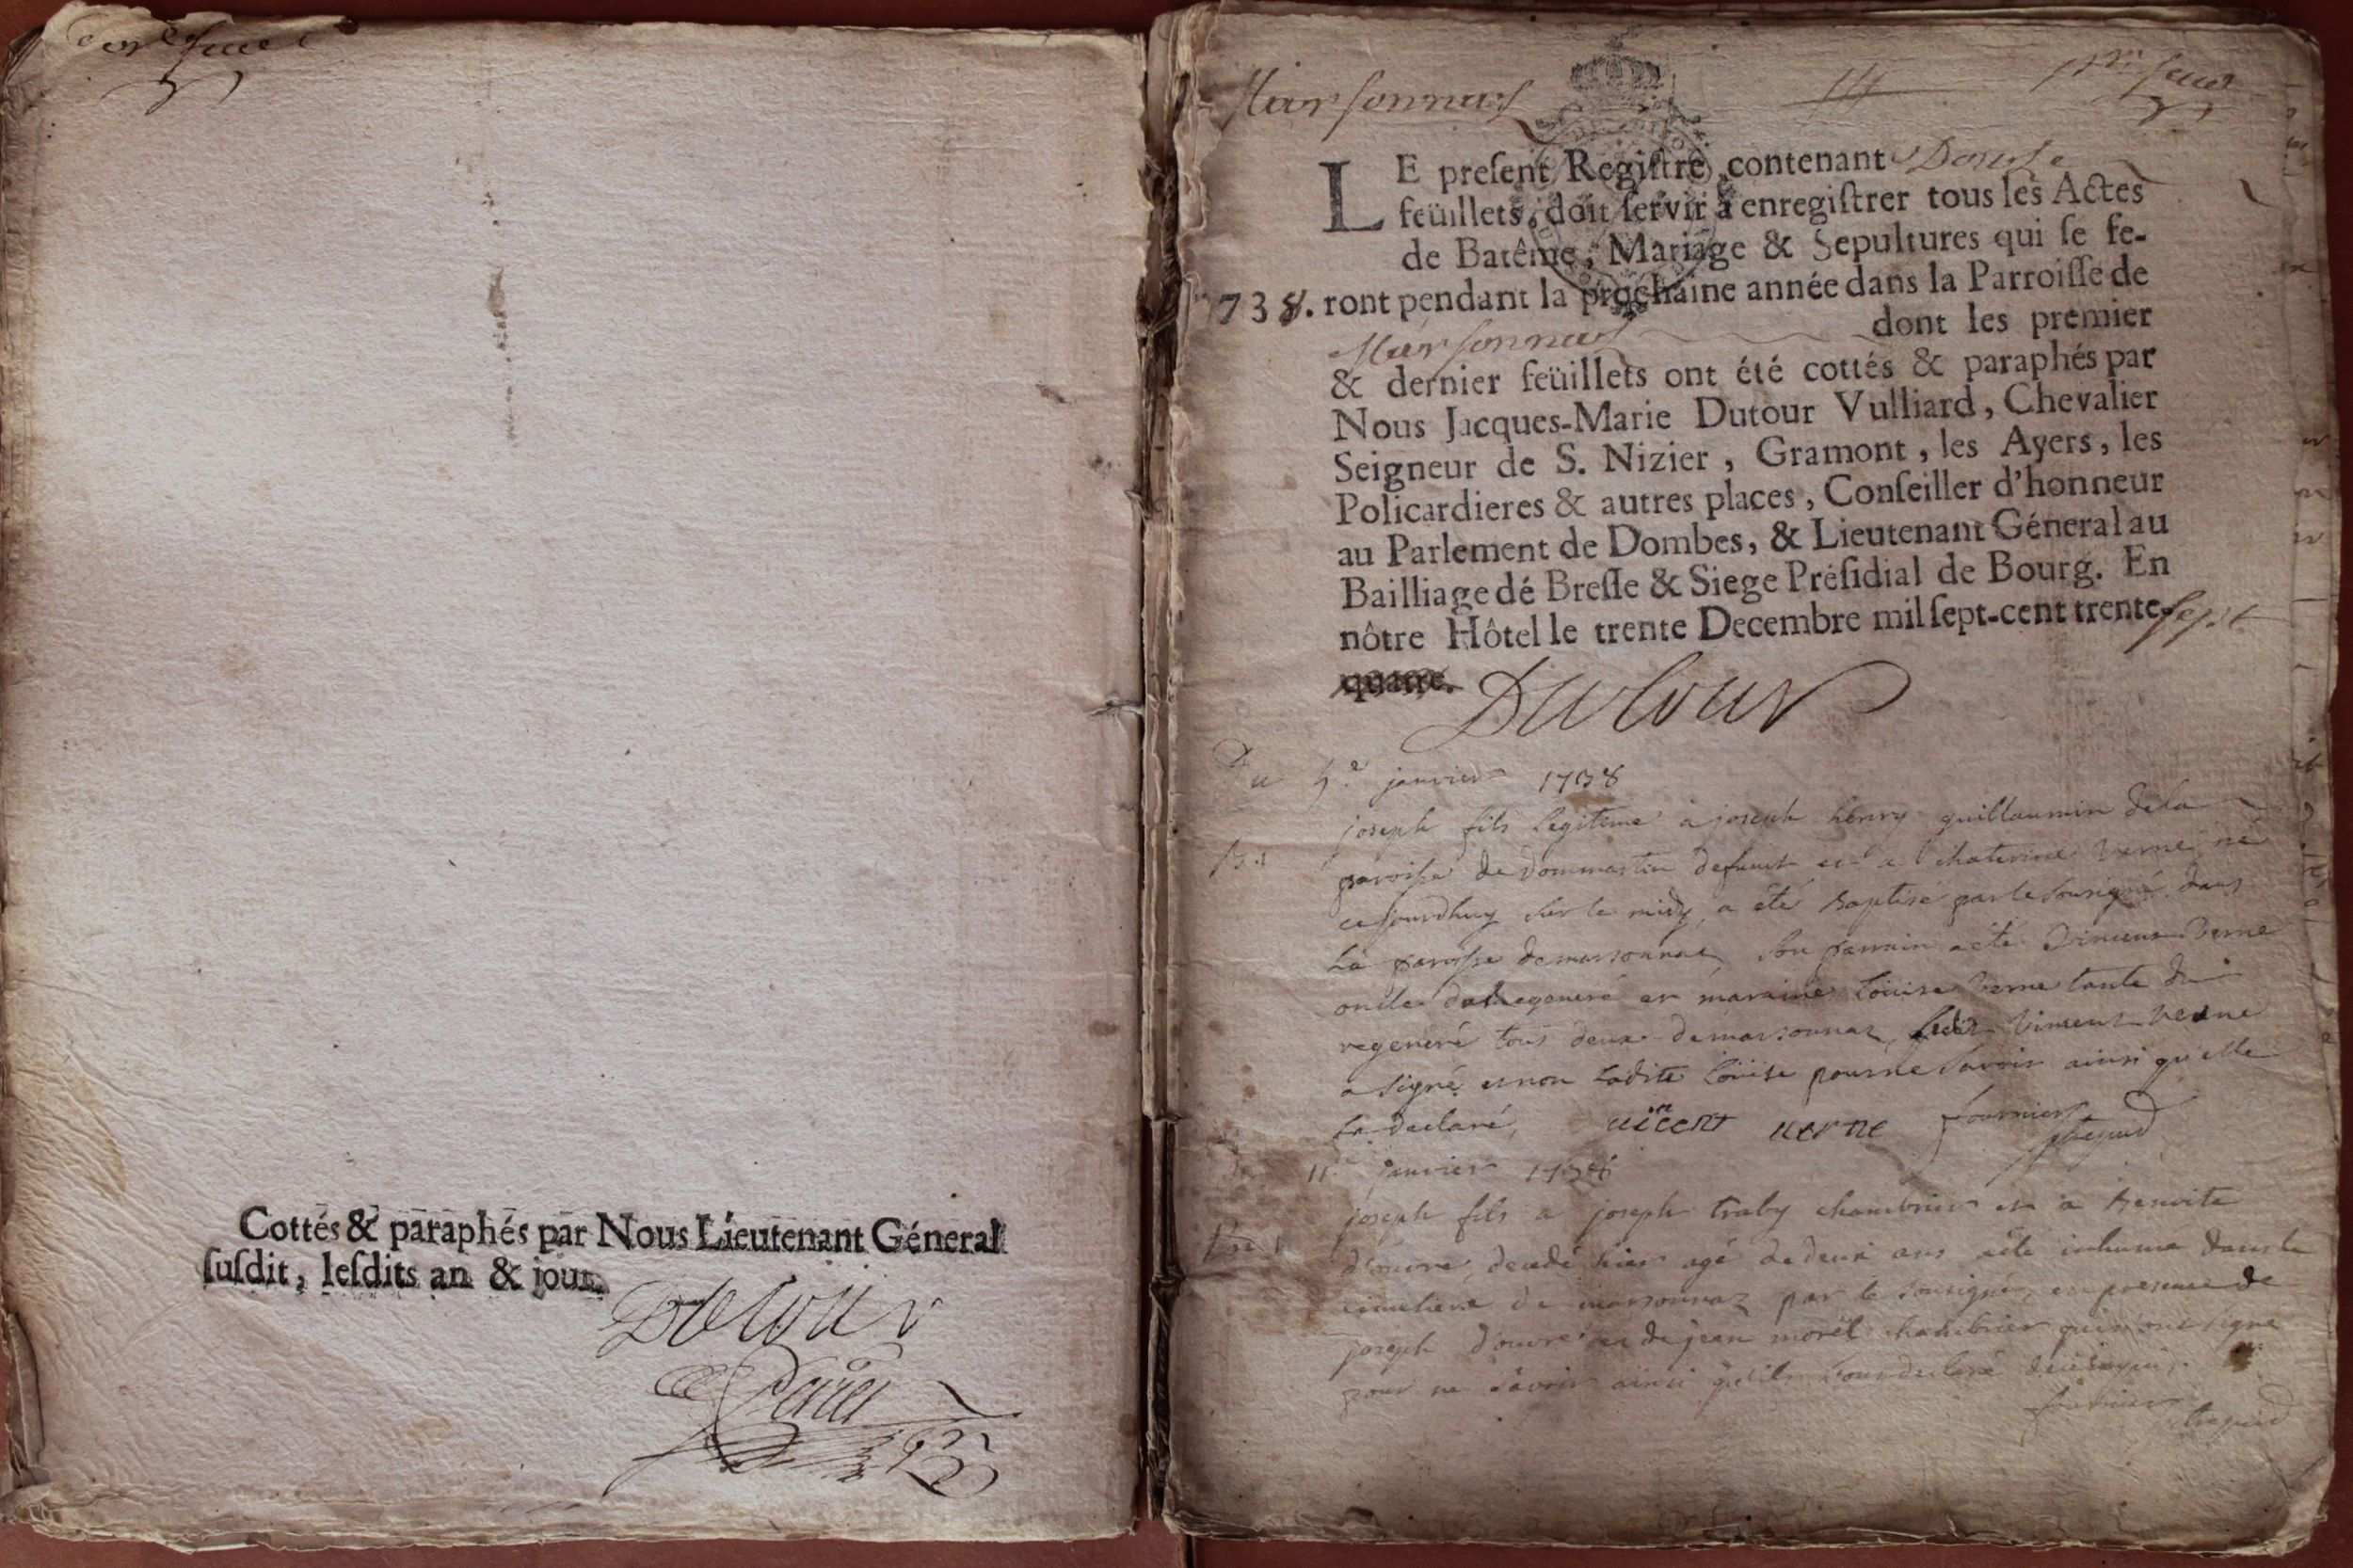 Cottés & paraphés par Nous Lieutenant Géneral
ſuſdit, leſdits an & jour.
Dutour
Marsonnas
LE preſent Regiſtre contenant Douze
feüillets, doit ſervir à enregiſtrer tous les Actes
de Batême, Mariage & Sepultures qui ſe fe-
1738. ront pendant la prochaine année dans la Parroiſſe de
Marsonnas dont les premier
& dernier feüillets ont été cottés & paraphés par
Nous Jacques-Marie Dutour Vulliard, Chevalier
Seigneur de S. Nizier, Gramont, les Ayers, les
Policardieres & autres places, Conſeiller d'honneur
au Parlement de Dombes, & Lieutenant Géneral au
Bailliage dé Breſſe & Siege Préſidial de Bourg. En
nôtre Hôtel le trente Decembre mil ſept-cent trente-sept
quatre.
Dutour
Du janvier 1738
joseph fils legitime a joseph henry guillaumin de la
paroisse de dommartin defunct et a Chaterine Verne né
cejourdhuy sur le midy, a été baptisé par le sousigné dans
la paroisse de marsonnas, son parrain a été Vincent Verne
oncle du regeneré et maraine Loüise Verne tante du
regeneré tous deux de marsonnaz, Ledit Vincent Verne
a signé et non Ladite Loüise pour ne savoir ainsi qu'elle
la declaré, uincent uerne fournier
11 janvier 1738
joseph fils a joseph traby chambrier et a benoite
d'ouvre, decedé hier agé de deux ans a été inhumé dans le
cimetiere de marsonnaz par le sousigné, en presence de
joseph d'ouvre et de jean morel chambrier qui n'ont signé
pour ne savoir ainsi qu'ils l'ont declaré
fournier